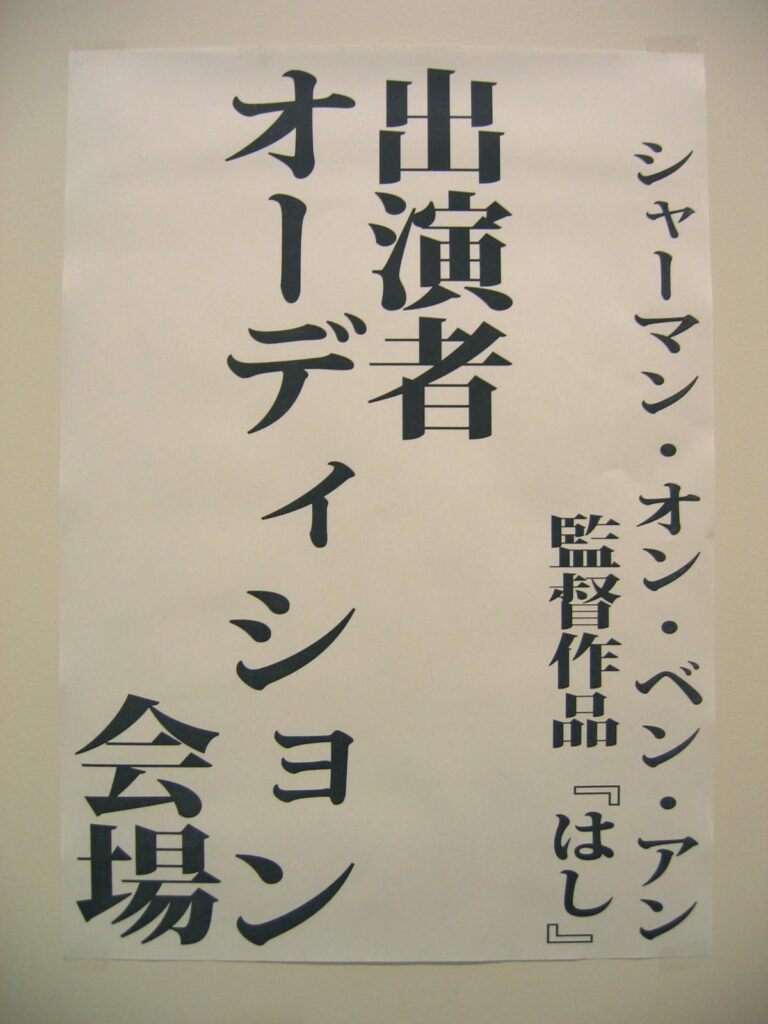 シャーマン・オン・ベン・アン
監督作品『はし』
出演者
オーディション
会場